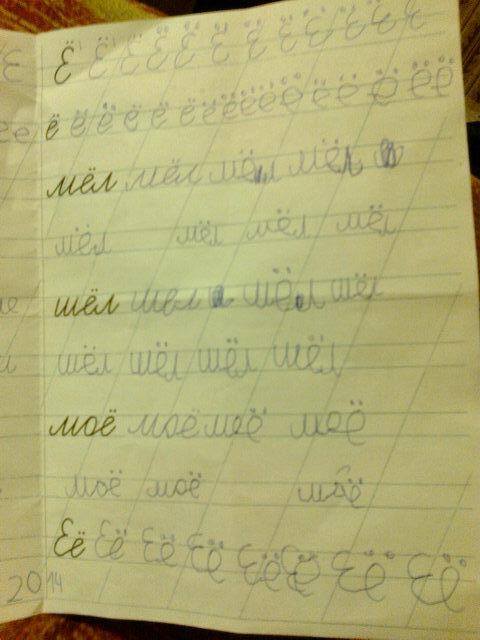 Ё Ё Ё Ё Ё Ё Ё Ё Ё Ё Ё Ё
ё ё ё ё ё ё ё ё ё ё ё ё ё ё ё ё
мёл мёл мёл мёл
мёл мёл мёл мёл
шёл шёл шёл шёл
шёл шёл шёл шёл
моё моё моё моё
моё моё моё
Её Её Её Её Её Её Её Её
2014